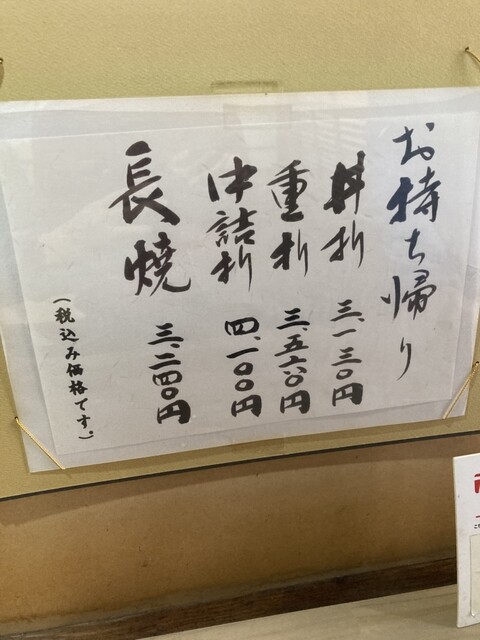 お持ち帰り
丼折 三、一三〇円
重折 三、五六〇円
中詰折 四、一〇〇円
長焼 三、二四〇円
(税込み価格です。)